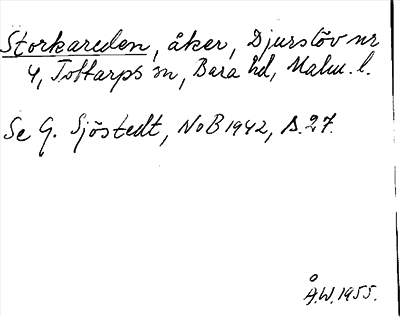 Storkareden, åker, Djurstöv nr
4, Tottarps sn, Bara hd, Malm. l.
Se G. Sjöstedt, NoB 1942, s. 27.
Å.W. 1955.